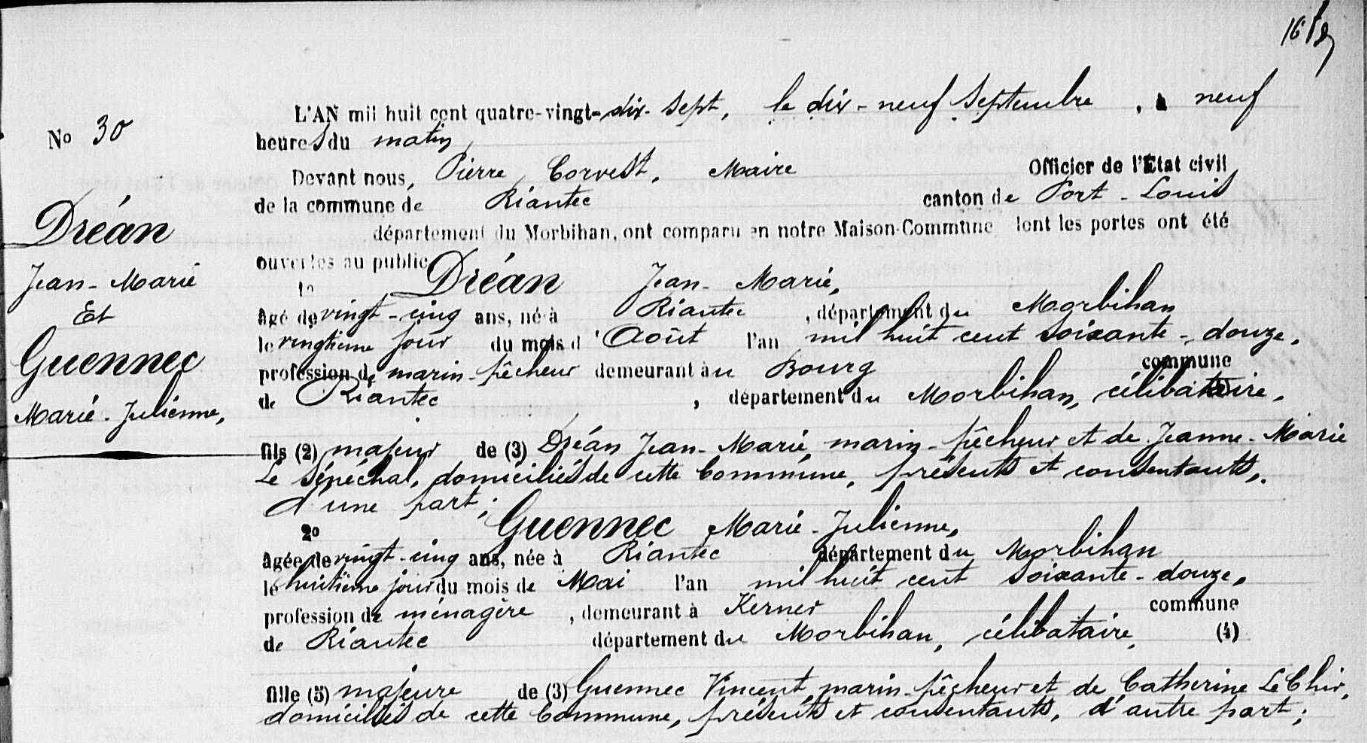 16
No 30
L'AN mil huit cent quatre-vingt-dix-sept, le dix-neuf Septembre, à neuf
heures du matin
Devant nous, Pierre Corvest, Maire Officier de l'État civil
de la commune de Riantec canton de Port-Louis
département du Morbihan, ont comparu en notre Maison-Commune dont les portes ont été
ouvertes au public
Dréan
Jean-Marie
Et
Guennec
Marie-Julienne,
1o Dréan Jean-Marie,
âgé de vingt-cinq ans, né à Riantec, département du Morbihan
le vingtième jour du mois d'Août l'an mil huit cent soixante-douze,
profession de marin-pêcheur demeurant au Bourg commune
de Riantec, département du Morbihan, célibataire,
fils (2) majeur de (3) Dréan Jean-Marie, marin-pêcheur et de Jeanne-Marie
Le Sénéchal, domiciliés de cette Commune, présents et consentants,
d'une part;
2o Guennec Marie-Julienne,
âgée de vingt-cinq ans, née à Riantec département du Morbihan
le huitième jour du mois de Mai l'an mil huit cent soixante-douze,
profession de ménagère, demeurant à Kerner commune
de Riantec département du Morbihan, célibataire, (4)
fille (5) majeure de (3) Guennec Vincent, marin-pêcheur et de Catherine Le Chir,
domiciliés de cette Commune, présents et consentants, d'autre part;